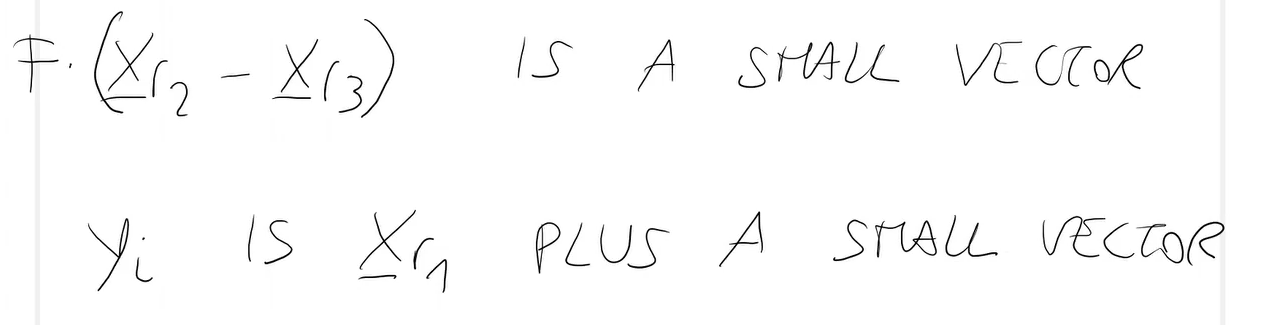 F. (X̲r₂ - X̲r₃) IS A SMALL VECTOR
yi IS X̲r₁ PLUS A SMALL VECTOR